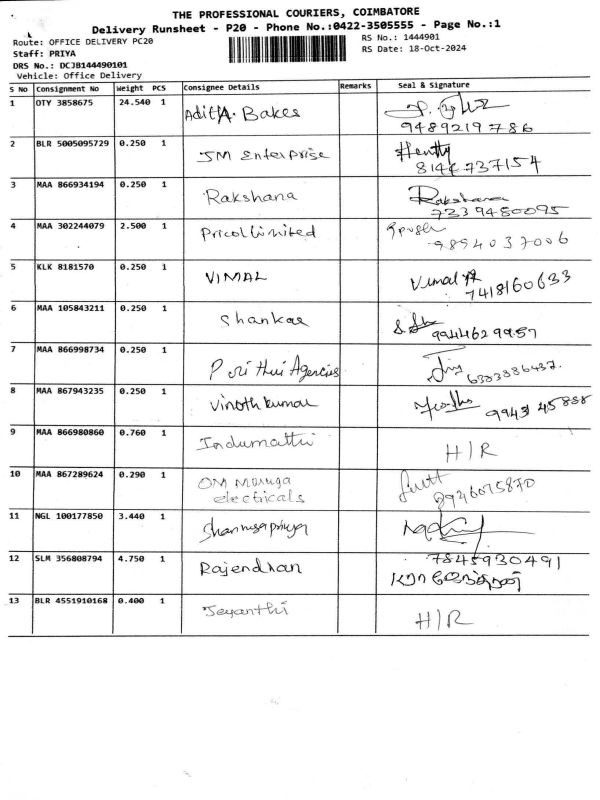 THE PROFESSIONAL COURIERS, COIMBATORE
Delivery Runsheet - P20 - Phone No.:0422-3505555 - Page No.:1
Route: OFFICE DELIVERY PC20
RS No.: 1444901
Staff: PRIYA
RS Date: 18-Oct-2024
DRS No.: DCJB144490101
Vehicle: Office Delivery
S No Consignment No Weight PCS Consignee Details Remarks Seal & Signature
1 OTY 3858675 24.540 1 AditA. Bakes
9489219786
2 BLR 5005095729 0.250 1 JM Enterprise
8144737154
3 MAA 866934194 0.250 1 Rakshana Rakshana
7339480095
4 MAA 302244079 2.500 1 Pricol Limited
9894037006
5 KLK 8181570 0.250 1 VIMAL Vimal
7418160633
6 MAA 105843211 0.250 1 Shankar
9944629957
7 MAA 866998734 0.250 1 Agencies
6383386437.
8 MAA 867943235 0.250 1 Vinothkumar
9943 45888
9 MAA 866980860 0.760 1 Indumathi H/R
10 MAA 867289624 0.290 1 OM Muruga
electricals
11 NGL 100177850 3.440 1
12 SLM 356808794 4.750 1 Rajendran 7845930491
13 BLR 4551910168 0.400 1 Jeyanthi H/R